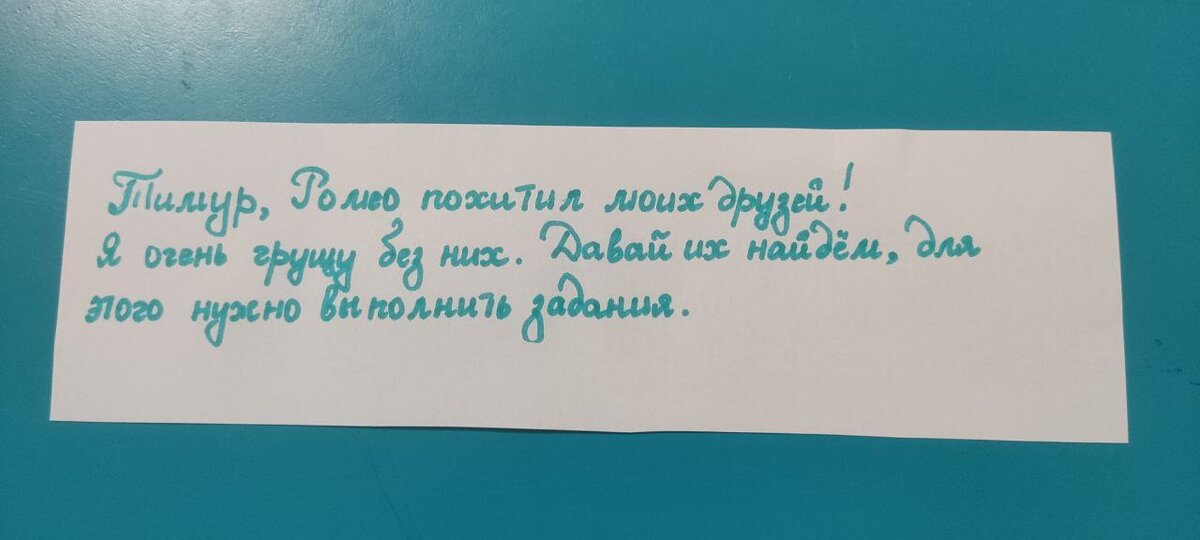 Тимур, Ромео похитил моих друзей!
Я очень грущу без них. Давай их найдём, для
этого нужно выполнить задания.